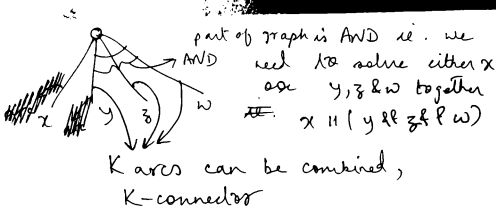 part of graph is AND ie. we
AND need to solve either x
or y, z & w together
x || (y && z && w)
x y z w
K arcs can be combined,
K-connector